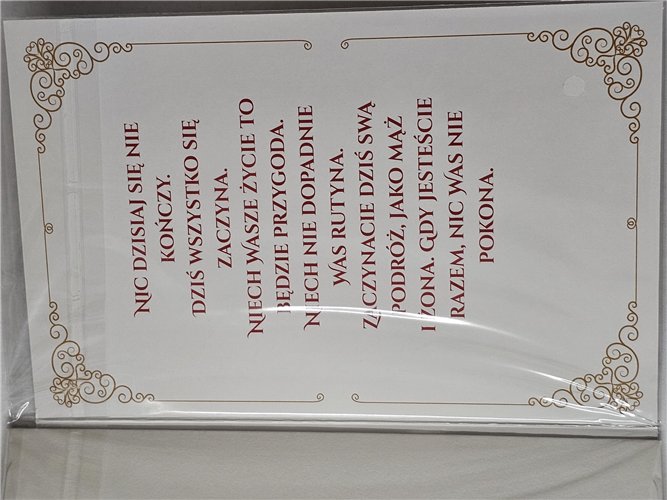 Nic dzisiaj się nie
kończy.
Dziś wszystko się
zaczyna.
Niech Wasze życie to
będzie przygoda.
Niech nie dopadnie
Was rutyna.
Zaczynacie dziś swą
podróż, jako mąż
i żona. Gdy jesteście
razem, nic Was nie
pokona.